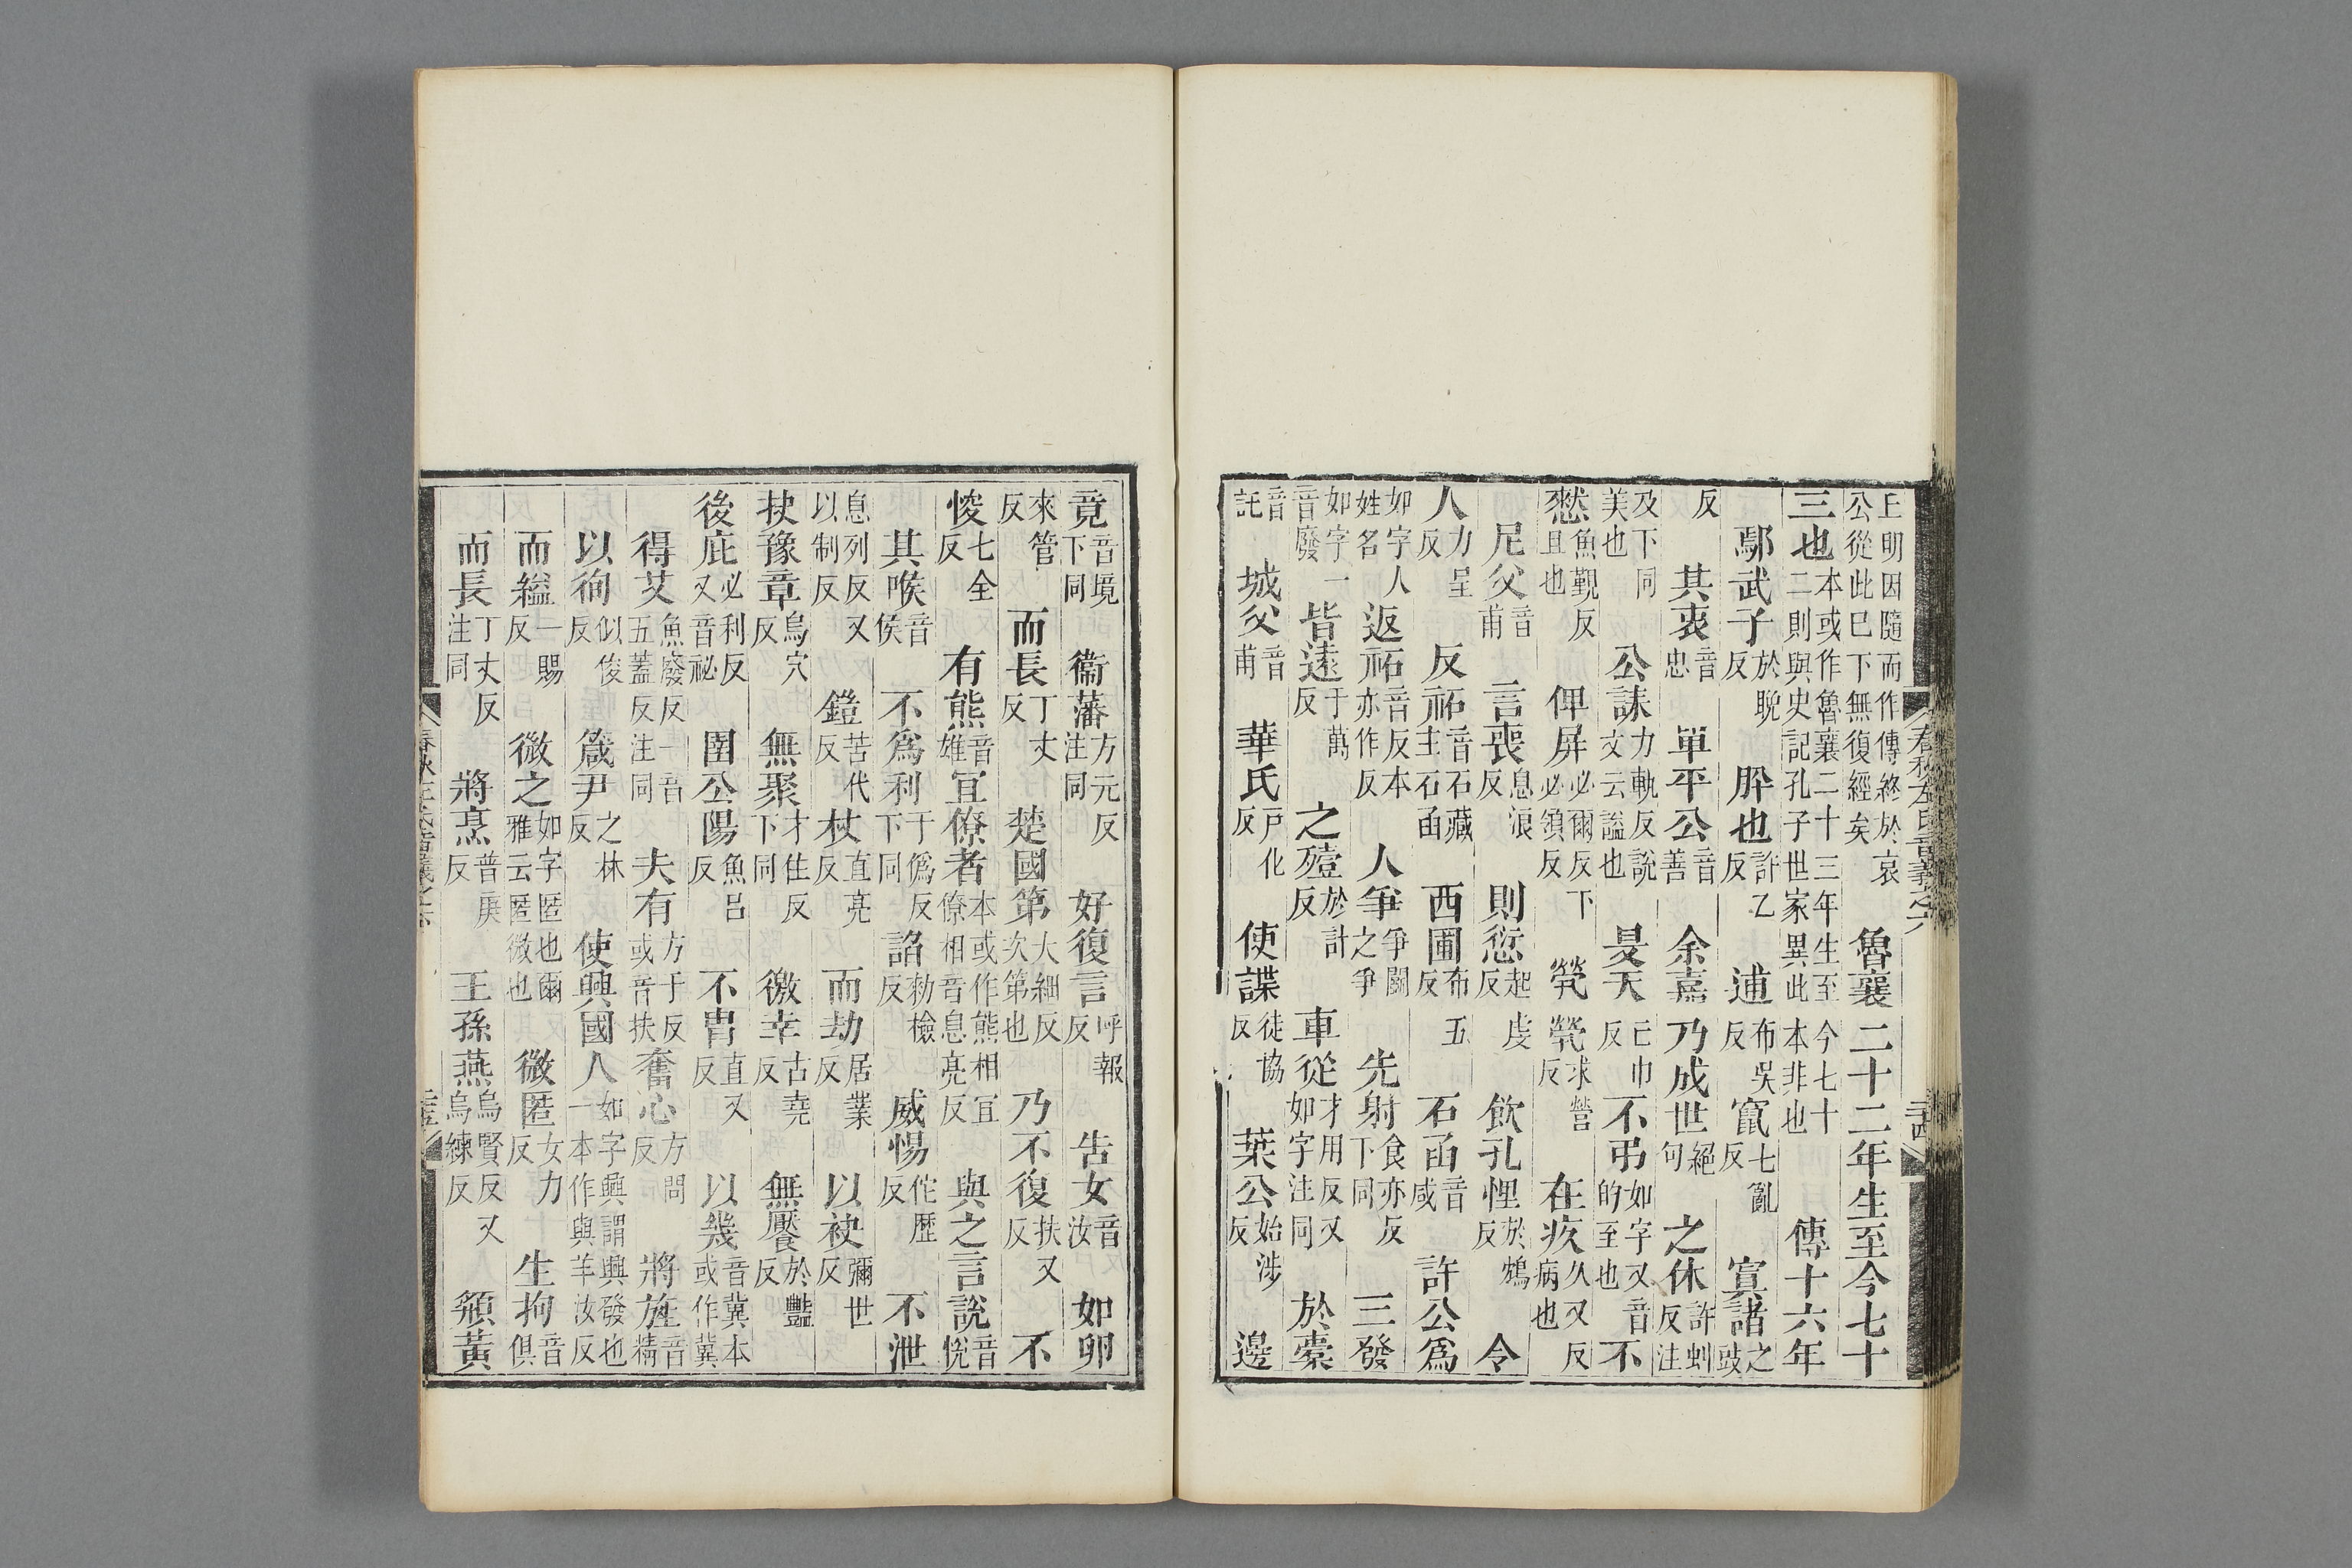 丘明因隨而作傳終於哀公從此已下無復經矣 魯襄二十二年生至今七十
三也本或作魯襄二十三年生至今七十二則與史記孔子世家異此本非也 傳十六年
鄢武子於晚反 肸也許乙反 逋布吳反 竄七亂反 寘諸之豉
反 其衷音忠 單平公音善 余嘉乃成世絕句 之休許虯反注
及下同美也 公誄力軌反說文云謚也 旻天亡巾反 不弔如字又音的至也 不
憖魚覲反且也 俾屏必爾反下必領反 煢煢求營反 在疚久又反病也
尼父音甫 言喪息浪反 則愆起虔反 飲孔悝於鴆反 令
人力呈反 反祏音石藏主石函 西圃布五反 石函音咸 許公爲
如字人姓名 返祏音反本亦作反 人爭爭鬬之爭 先射食亦反下同 三發
如字一音廢 皆遠于萬反 之殪於計反 車從才用反又如字注同 於橐
音託 城父音甫 華氏戶化反 使諜徒協反 葉公始涉反 邊
竟音境下同 衞藩方元反注同 好復言呼報反 告女音汝 如卵
來管反 而長丁丈反 楚國第大細反次第也 乃不復扶又反 不
悛七全反 有熊音雄 宜僚者本或作熊相宜僚相音息亮反 與之言說音悅
其喉音侯 不爲利于僞反下同 諂勑檢反 威惕佗歷反 不泄
息列反又以制反 鎧苦代反 杖直亮反 而劫居業反 以袂彌世反
抉豫章烏穴反 無聚才住反下同 徼幸古堯反 無饜於豔反
後庇必利反又音祕 圉公陽魚呂反 不冑直又反 以幾音冀本或作冀
得艾魚廢反一音五蓋反注同 夫有方于反或音扶 奮心方問反 將旌音精
以徇似俊反 箴尹之林反 使興國人如字興謂興發也一本作與羊汝反
而縊一賜反 微之如字匿也爾雅云匿微也 微匿女力反 生拘音俱
而長丁丈反注同 將烹普庚反 王孫燕烏賢反又烏練反 頯黃
春秋左氏音義之六